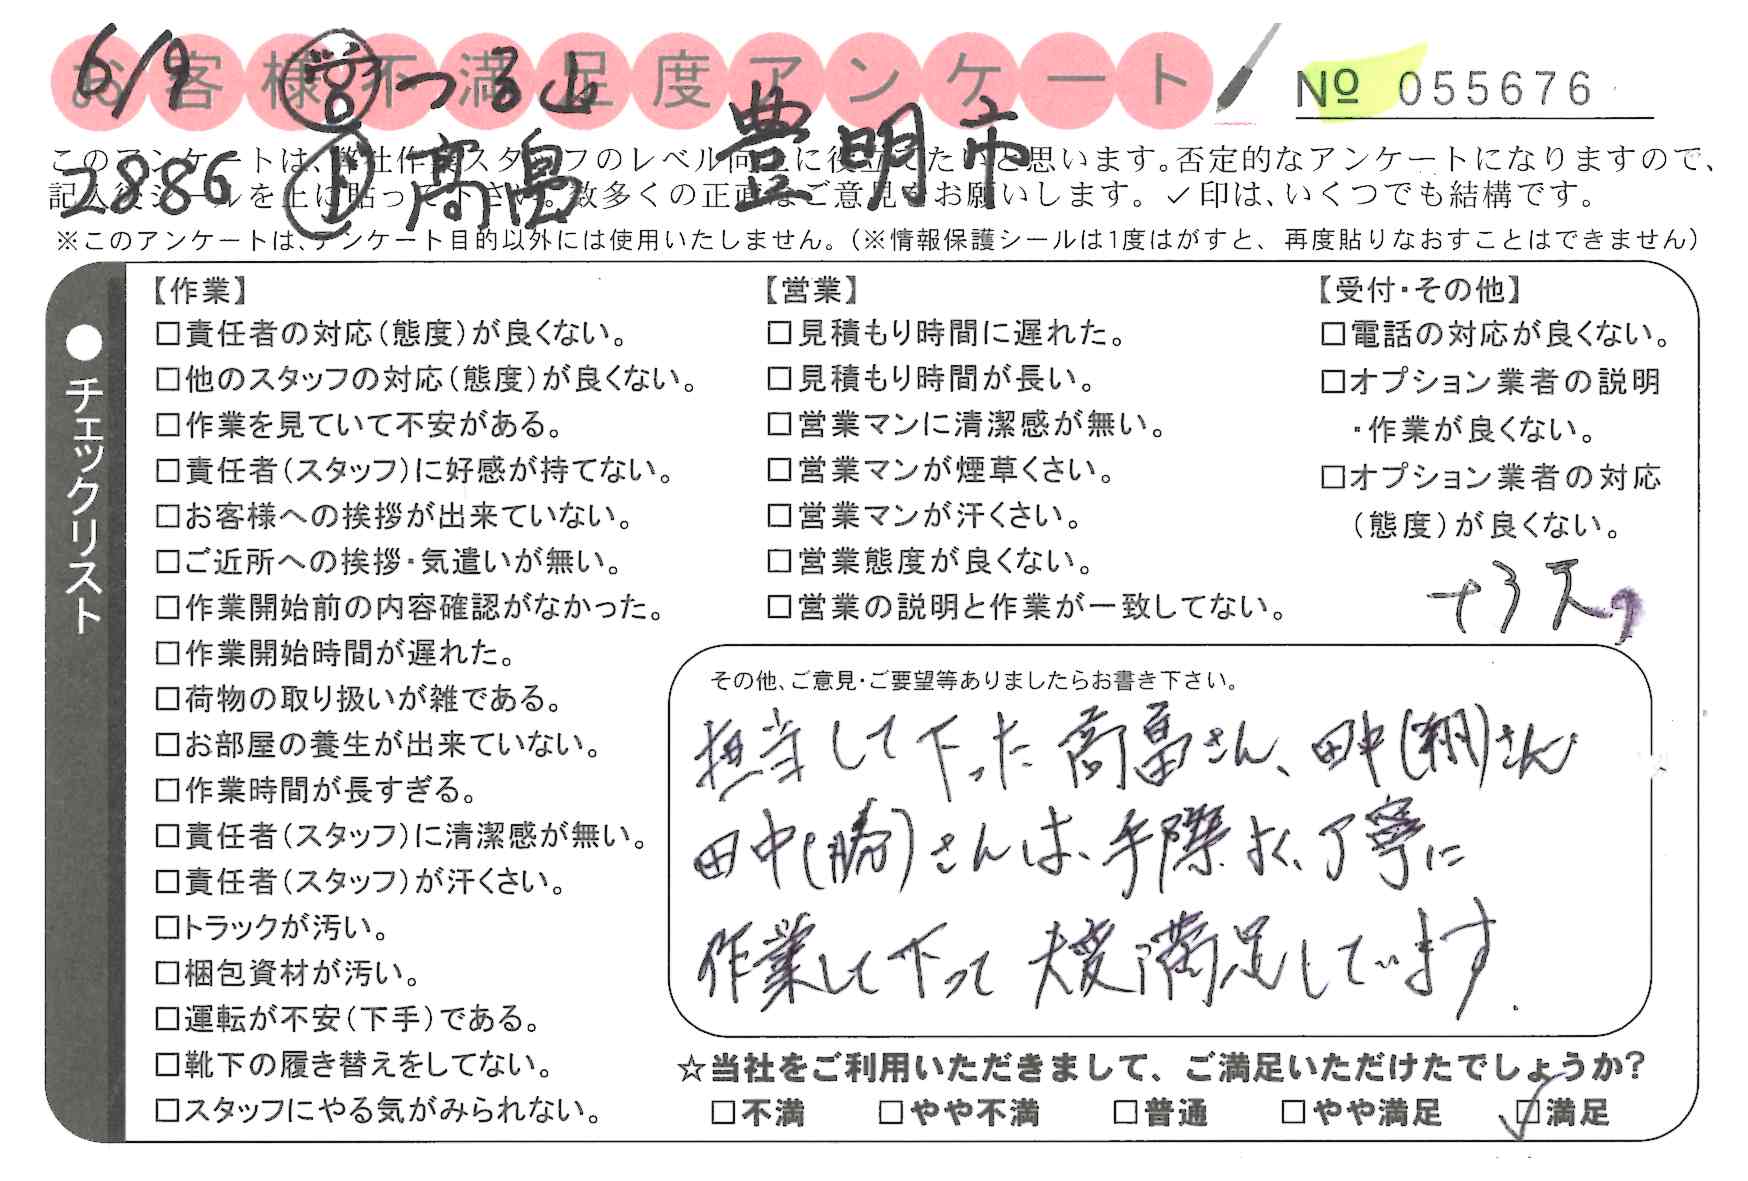 お客様不満足度アンケート
№ 055676
6/9 営 つる山
2886 高畠 豊明市
このアンケートは、弊社作業スタッフのレベル向上に役立てたいと思います。否定的なアンケートになりますので、
記入後シールを上に貼って下さい。数多くの正直なご意見をお願いします。✓印は、いくつでも結構です。
※このアンケートは、アンケート目的以外には使用いたしません。(※情報保護シールは1度はがすと、再度貼りなおすことはできません)
●チェックリスト
【作業】
□責任者の対応(態度)が良くない。
□他のスタッフの対応(態度)が良くない。
□作業を見ていて不安がある。
□責任者(スタッフ)に好感が持てない。
□お客様への挨拶が出来ていない。
□ご近所への挨拶・気遣いが無い。
□作業開始前の内容確認がなかった。
□作業開始時間が遅れた。
□荷物の取り扱いが雑である。
□お部屋の養生が出来ていない。
□作業時間が長すぎる。
□責任者(スタッフ)に清潔感が無い。
□責任者(スタッフ)が汗くさい。
□トラックが汚い。
□梱包資材が汚い。
□運転が不安(下手)である。
□靴下の履き替えをしてない。
□スタッフにやる気がみられない。
【営業】
□見積もり時間に遅れた。
□見積もり時間が長い。
□営業マンに清潔感が無い。
□営業マンが煙草くさい。
□営業マンが汗くさい。
□営業態度が良くない。
□営業の説明と作業が一致してない。
【受付・その他】
□電話の対応が良くない。
□オプション業者の説明
・作業が良くない。
□オプション業者の対応
(態度)が良くない。
その他、ご意見・ご要望等ありましたらお書き下さい。
担当して下った高畠さん、田中(翔)さん
田中(勝)さんは、手際よく、丁寧に
作業して下って大変満足しています.
☆当社をご利用いただきまして、ご満足いただけたでしょうか?
□不満 □やや不満 □普通 □やや満足 ☑満足